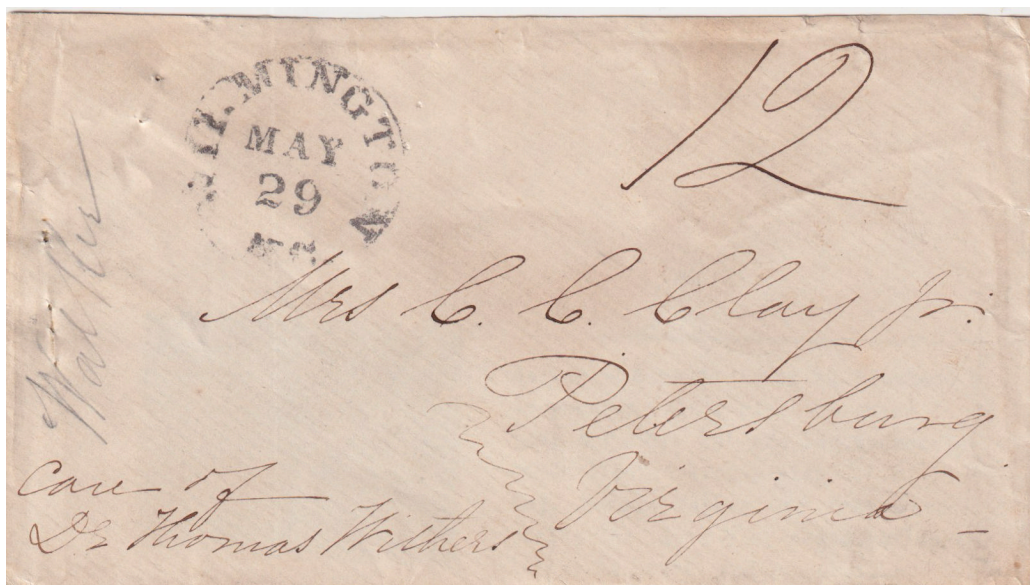 WILMINGTON
MAY
29
N.C.
12
Walker
Mrs C. C. Clay Jr.
Petersburg
Virginia
care of
Dr Thomas Withers